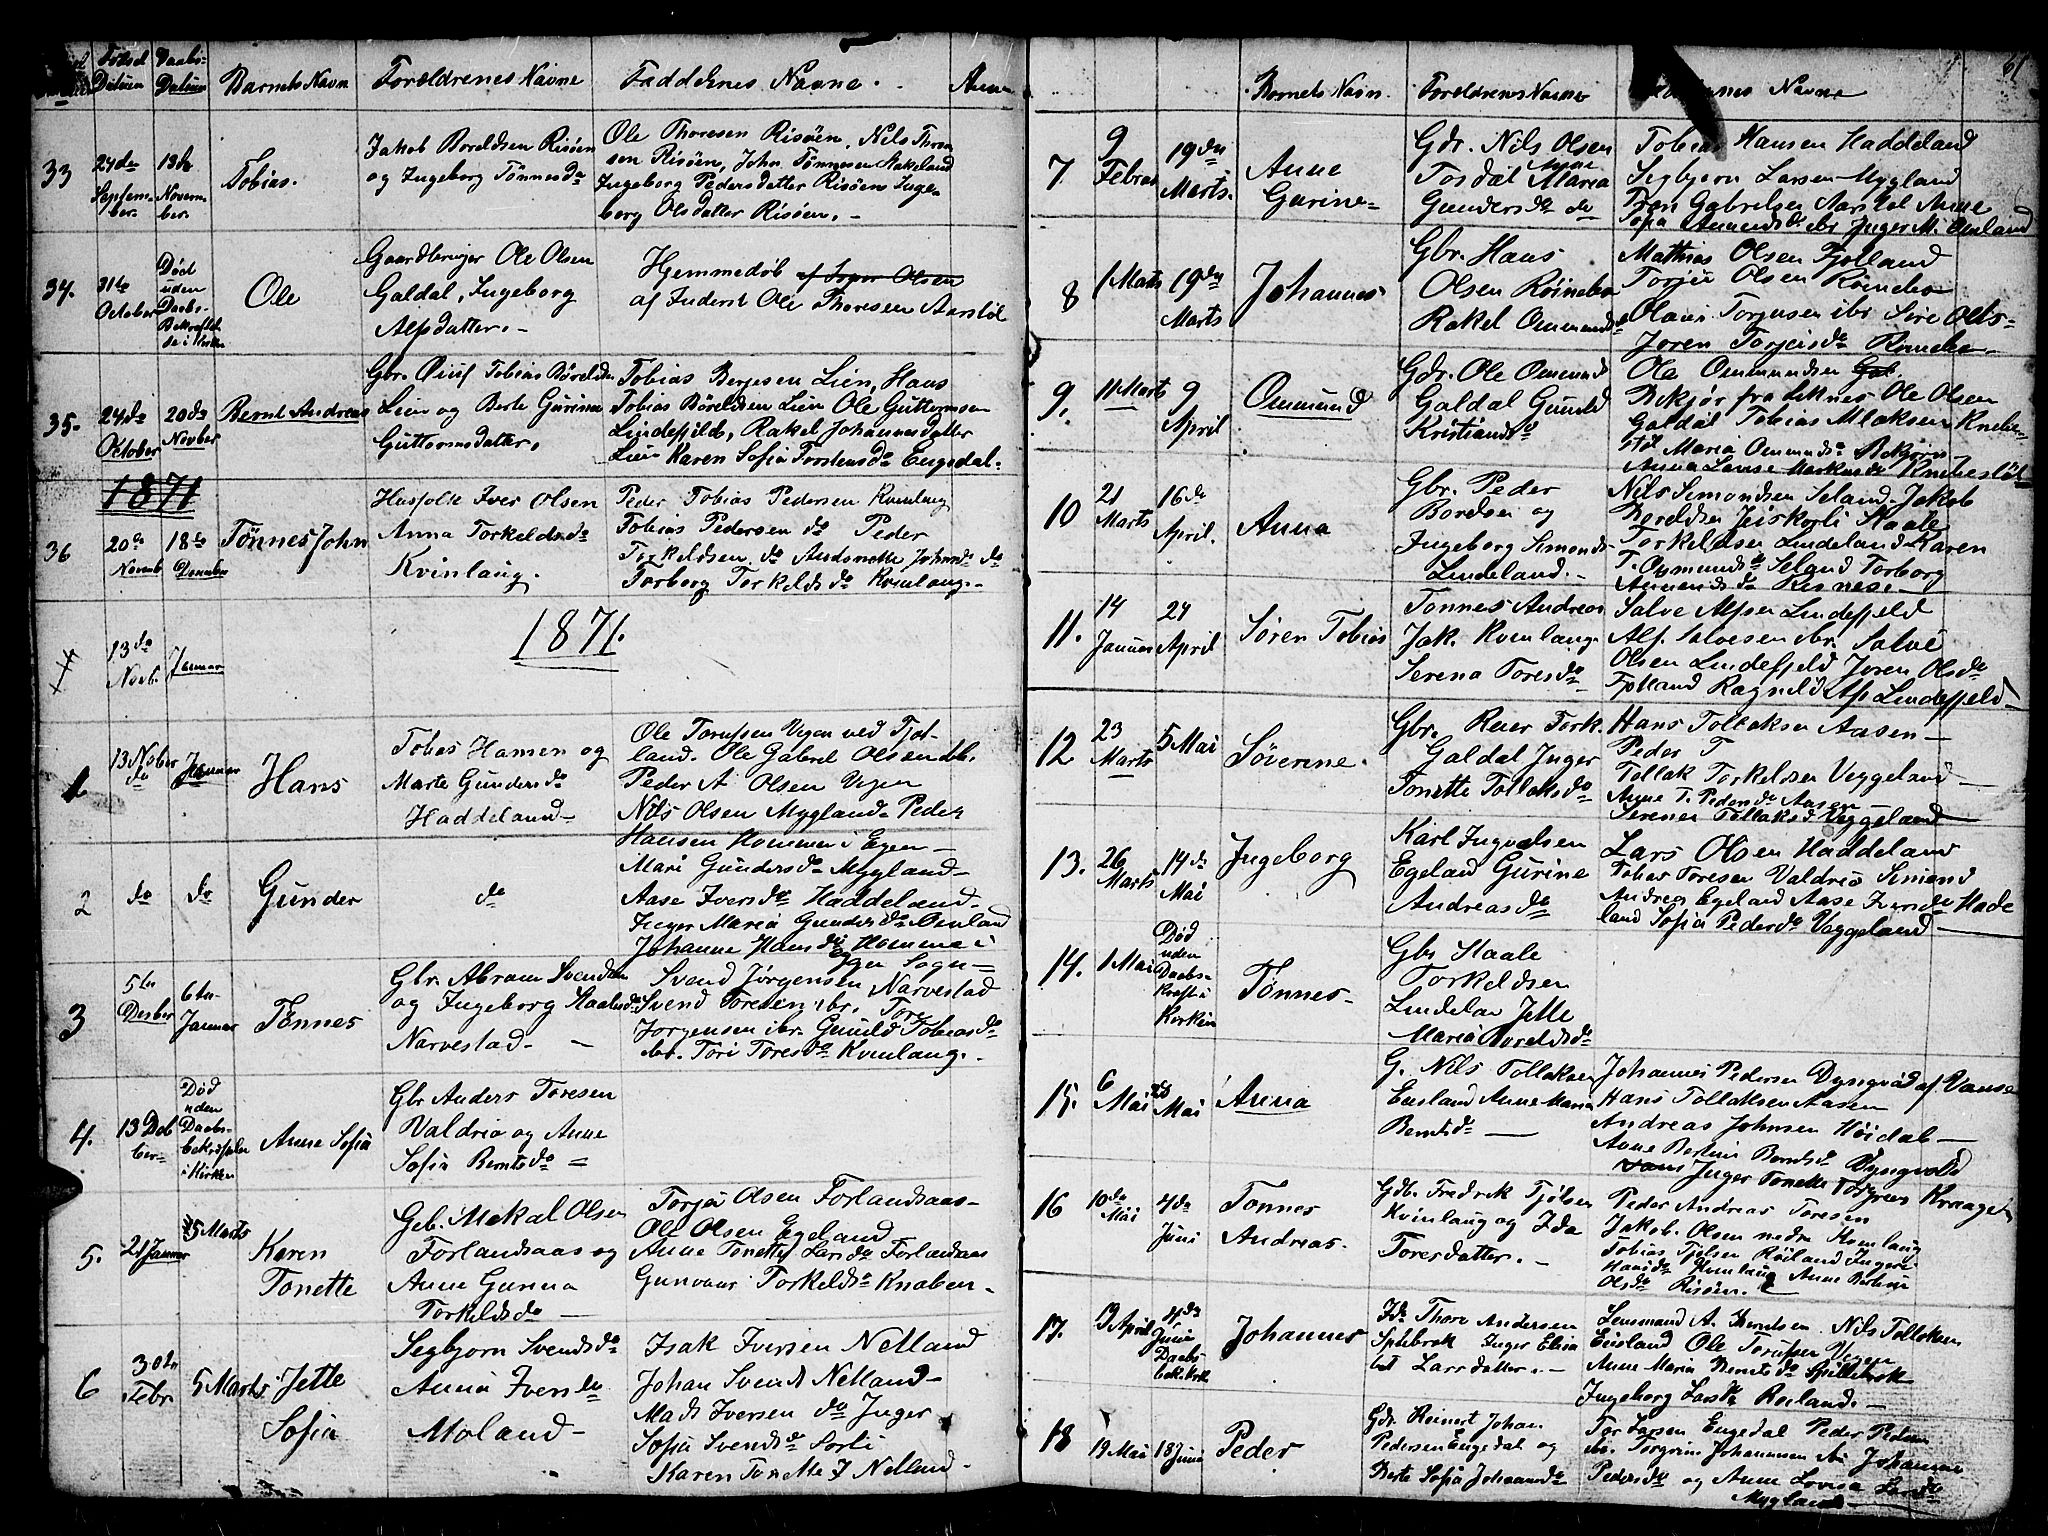 Fødsel Datum
Daabs-Datum
Barnets Navn
Forældrenes Navne
Faddernes Navne.
33
24de Septem-ber.
13de Novem-ber.
Tobias.
Jakob Boreldsen Risöen
og Ingeborg Tönnesda
Ole Thoresen Risöen, Nils Thore
sen Risöen, John Tönnesen Nakeland
Ingeborg Pedersdatter Risöen Inge-
borg Olsdatter Risöen.-
34.
31te October
Död uden Daabs-Bekræftelse i Kirken
Ole
Gaardbruger Ole Olsen
Galdal, Ingeborg
Alfsdatter.-
Hjemmedöb
af Inderst Ole Thoresen Aarstöl
35.
24de October
20de Novber
Bernt Andreas
Tobias Böreldsen
Lien og Berte Gurine
Guttormsdatter.
Tobias Berjesen Lien, Hans
Tobias Böreldsen Lien Ole Guttormsen
Lindefjeld, Rakel Johannesdatter
Lien Karen Sofia Torstensda Engedal.
1871
36
20de Novemb
18de December
Tönnes John
Husfolk Iver Olsen
Anna Torkeldsda
Kvinlaug.
Peder Tobias Pedersen Kvinlaug
Tobias Pedersen do Peder
Torkeldsen do Johnsda do
Torborg Torkeldsda Kvinlaug.-
1871.
13de Novb.
Januar
1
13 Nober
Januar
Hans
Tobias Hansen og
Marte Gundersda
Haddeland-
Ole Torussen Vegen ved Fjot-
land. Ole Gabriel Olsen ibr.
Peder A Olsen Vegen
Nils Olsen Mygland- Peder
Hansen Homme i Egen-
2
do
do
Gunder
do
Mari Gundersda Mygland-
Aase Iversda Haddeland-
Inger Maria Gundersda Omland
Johanne Hansda Homme i
Egen Sogn-
3
5te Desber
6te Januar
Tönnes
Gbr. Abram Svendsen
og Ingeborg Staalesda
Narvestad-
Svend Jörgensen Narvestad
Svend Toresen ibr. Tore
Jörgensen ibr. Gunild Tobiasda
ibr. Tori Toresda Kvinlaug.-
4.
13 Decber-
Död uden Daabs-bekræftelse i Kirken
Anne Sofia
Gbr Anders Toresen
Valdria og Anne
Sofia Berntsda -
5.
21 Januar
5 Marts
Karen
Tonette
Gbr. Mekal Olsen
Forlandsaas og
Anne Gunna
Torkeldsda
Torjei Olsen Forlandsaas-
Ole Olsen Egeland
Anne Tonette Larsda Forlandsaas
Gunvaar Torkeldsda Knaben-
6
30te Febr.
5 Marts
Jette
Sofia
Segbjorn Svendsda
Anna Iversda
Moland-
Isak Iversen Netland
Johan Svends Netland-
Mads Iversen do Inger
Sofia Svendsda Sorli
Karen Tonette I Netland-
61
Barnets Navn.
Forældrenes Navne
Navne
7
9 Februar
19den Marts.
Anne
Gurine-
Gdr. Nils Olsen
Tosdal Anne Maria
Gundersda do
Tobias Hansen Haddeland
Segbjorn Larsen Mygland
Gabrielsen Aarstöl Anne
Sofia Aanensda ibr Inger M. Omland
8
1 Marts
19den Marts
Johannes
Gbr. Hans
Olsen Röinebo
Rakel Ommundsda
Mathias Olsen Fjotland
Torjus Olsen Röinebo
Olaus Torjusen ibr Sire Olts-
Joren Torjeisda Röinebo-
9.
11 Marts
9 April
Ommund
Gdr. Ole Ommund
Galdal Gunild
Kristiansda
Ole Ommundsen
Bekjör fra Liknes Ole Olsen
Galdal Tobias Aslaksen Knebe-
stöl Maria Ommundsda Bekjör
Anna Lovise Markusda Knebestöl
10
21 Marts
16de April.
Anna
Gbr. Peder
Boreldsen og
Ingeborg Simonds-
Lindeland.-
Nils Simondsen Seland Jakob
Boreldsen Staale
Torkeldsen Lindeland-Karen
T. Osmundsda Seland Torborg
Aanensda Risnes.-
11.
14 Januar
24 April
Sören Tobias
Tönnes Andreas
Jak. Kvinlaug
Serena Toresda-
Salve Alfsen Lindefjeld
Alf. Salvesen ibr. Salve
Olsen Lindefjeld Joren Olsda
Fjotland Ragnild Alfs Lindefjeld-
12
23 Marts
5 Mai
Söverine.
Gbr. Reier Tork.
Galdal Inger
Tonette Tollaksda
Hans Tollaksen Aasen-
Peder T
Tollak Torkeldsen Veggeland-
Anne T. Pedersda Aasen-
Serene Tollaksd Veggeland-
13.
26 Marts
14de Mai
Ingeborg
Karl Ingvalsen
Egeland Gurine
Andreasda
Lars Olsen Haddeland
Tobias Toresen Valdria Simond
Andreas Egeland Aase Iversda Hade
land Sofia Pedersda Veggeland-
14.
1 Mai
Död uden Daabs-kraft i Kirken
Tönnes-
Gbr Staale
Torkeldsen
Lindeland Jette
Maria Boreldsda
15.
6 Mai
Mai
Anna
G. Nils Tollaksen
Eiesland Anne Maria
Berntsda -
Johannes Pedersen Dyngvold af Vanse
Hans Tollaksen Aasen
Andreas Johnsen Höidal-
Anne Bertine Berntsda Dyngvold
Inger Tonette Torgiersen Kvaaget
16
10de Mai
4de Juni
Tönnes
Andreas.
Gdb. Fredrik Tjölsen
Kvinlaug og Ida
Toresdatter.-
Peder Andreas Toresen
Jakob Olsen nedre Kvinlaug
Tobias Tjelsen Röiland Ingere
Hansda Kvinlaug Anne Bertine
Olsda Risöen.
17.
19 April
4de Juni Daabs
Johannes
Thore Andersen
Spilebrok Inger Elisa
bet Larsdatter.-
Lensmand A. Berntsen. Nils Tollaksen
Eiesland Ole Torussen Vegen
Anne Maria Berntsda Spillebrok
Ingeborg Larsda Röiland.-
18
19 Mai
18 Juni
Peder
Gdr. Reinert Johan
Pedersen Engedal og
Berte Sofia Johannsda
Tor Larsen Engedal Peder Pedersen
ibr. Torgrim Johannesen ibr Johanne
Pedersda og Anne Lovise Larsda
Mygland-